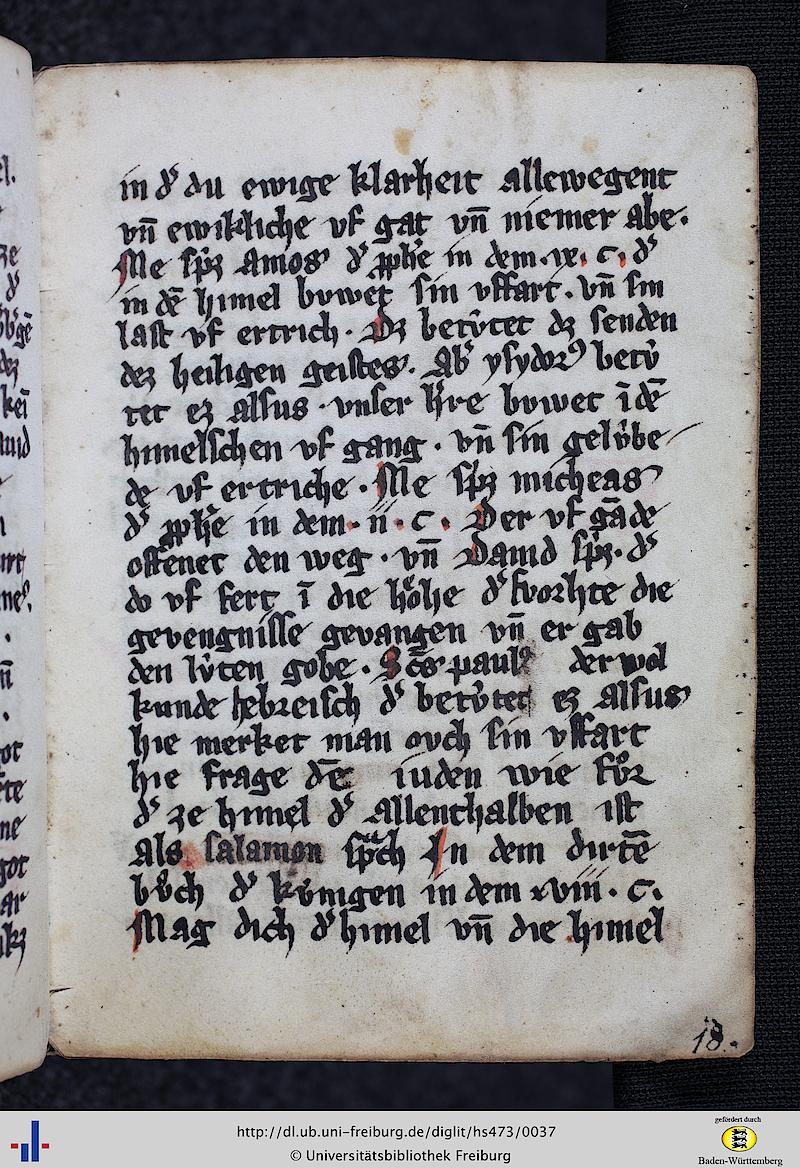 in dˀ du ewige klarheit allewegent
vn̄ ewikliche vf gat vn̄ niemer abe.
Me spͥcht Amos dˀ ꝓphe in dem .ix. c. dˀ
in dē himel bvwet sin vffart. vn̄ sin
last vf ertrich. Dz betv̂tet dz senden
dez heiligen geistes. Abˀ ysydorꝰ betv̂
tet ez alsus. vnser hˀre bvwet ī dē
himelschen vf gang. vn̄ sin gelv̂be
de vf ertriche. Me spͥcht micheas
dˀ ꝓphe in dem .ii. c. Der vf gāde
offenet den weg. vn̄ Dauid spͥcht. dˀ
do vf fert ī die hoͤhe dˀ fvorhte die
gevengnisse gevangen vn̄ er gab
den lv̂ten gobe. S cs̄ paulꝰ der wol
kunde hebreisch dˀ betv̂tet ez alsus
hie merket man ovch sin vffart
hie frage dē iuden wie fv̊r
dˀ ze himel dˀ allenthalben ist
als salamon spͣch In dem dirtē
bv̊ch dˀ kv̂nigen in dem xviii. c.
Mag dich dˀ himel vn̄ die himel
18.
http://dl.ub.uni-freiburg.de/diglit/hs473/0037
© Universitätsbibliothek Freiburg
gefördert durch
Baden-Württemberg